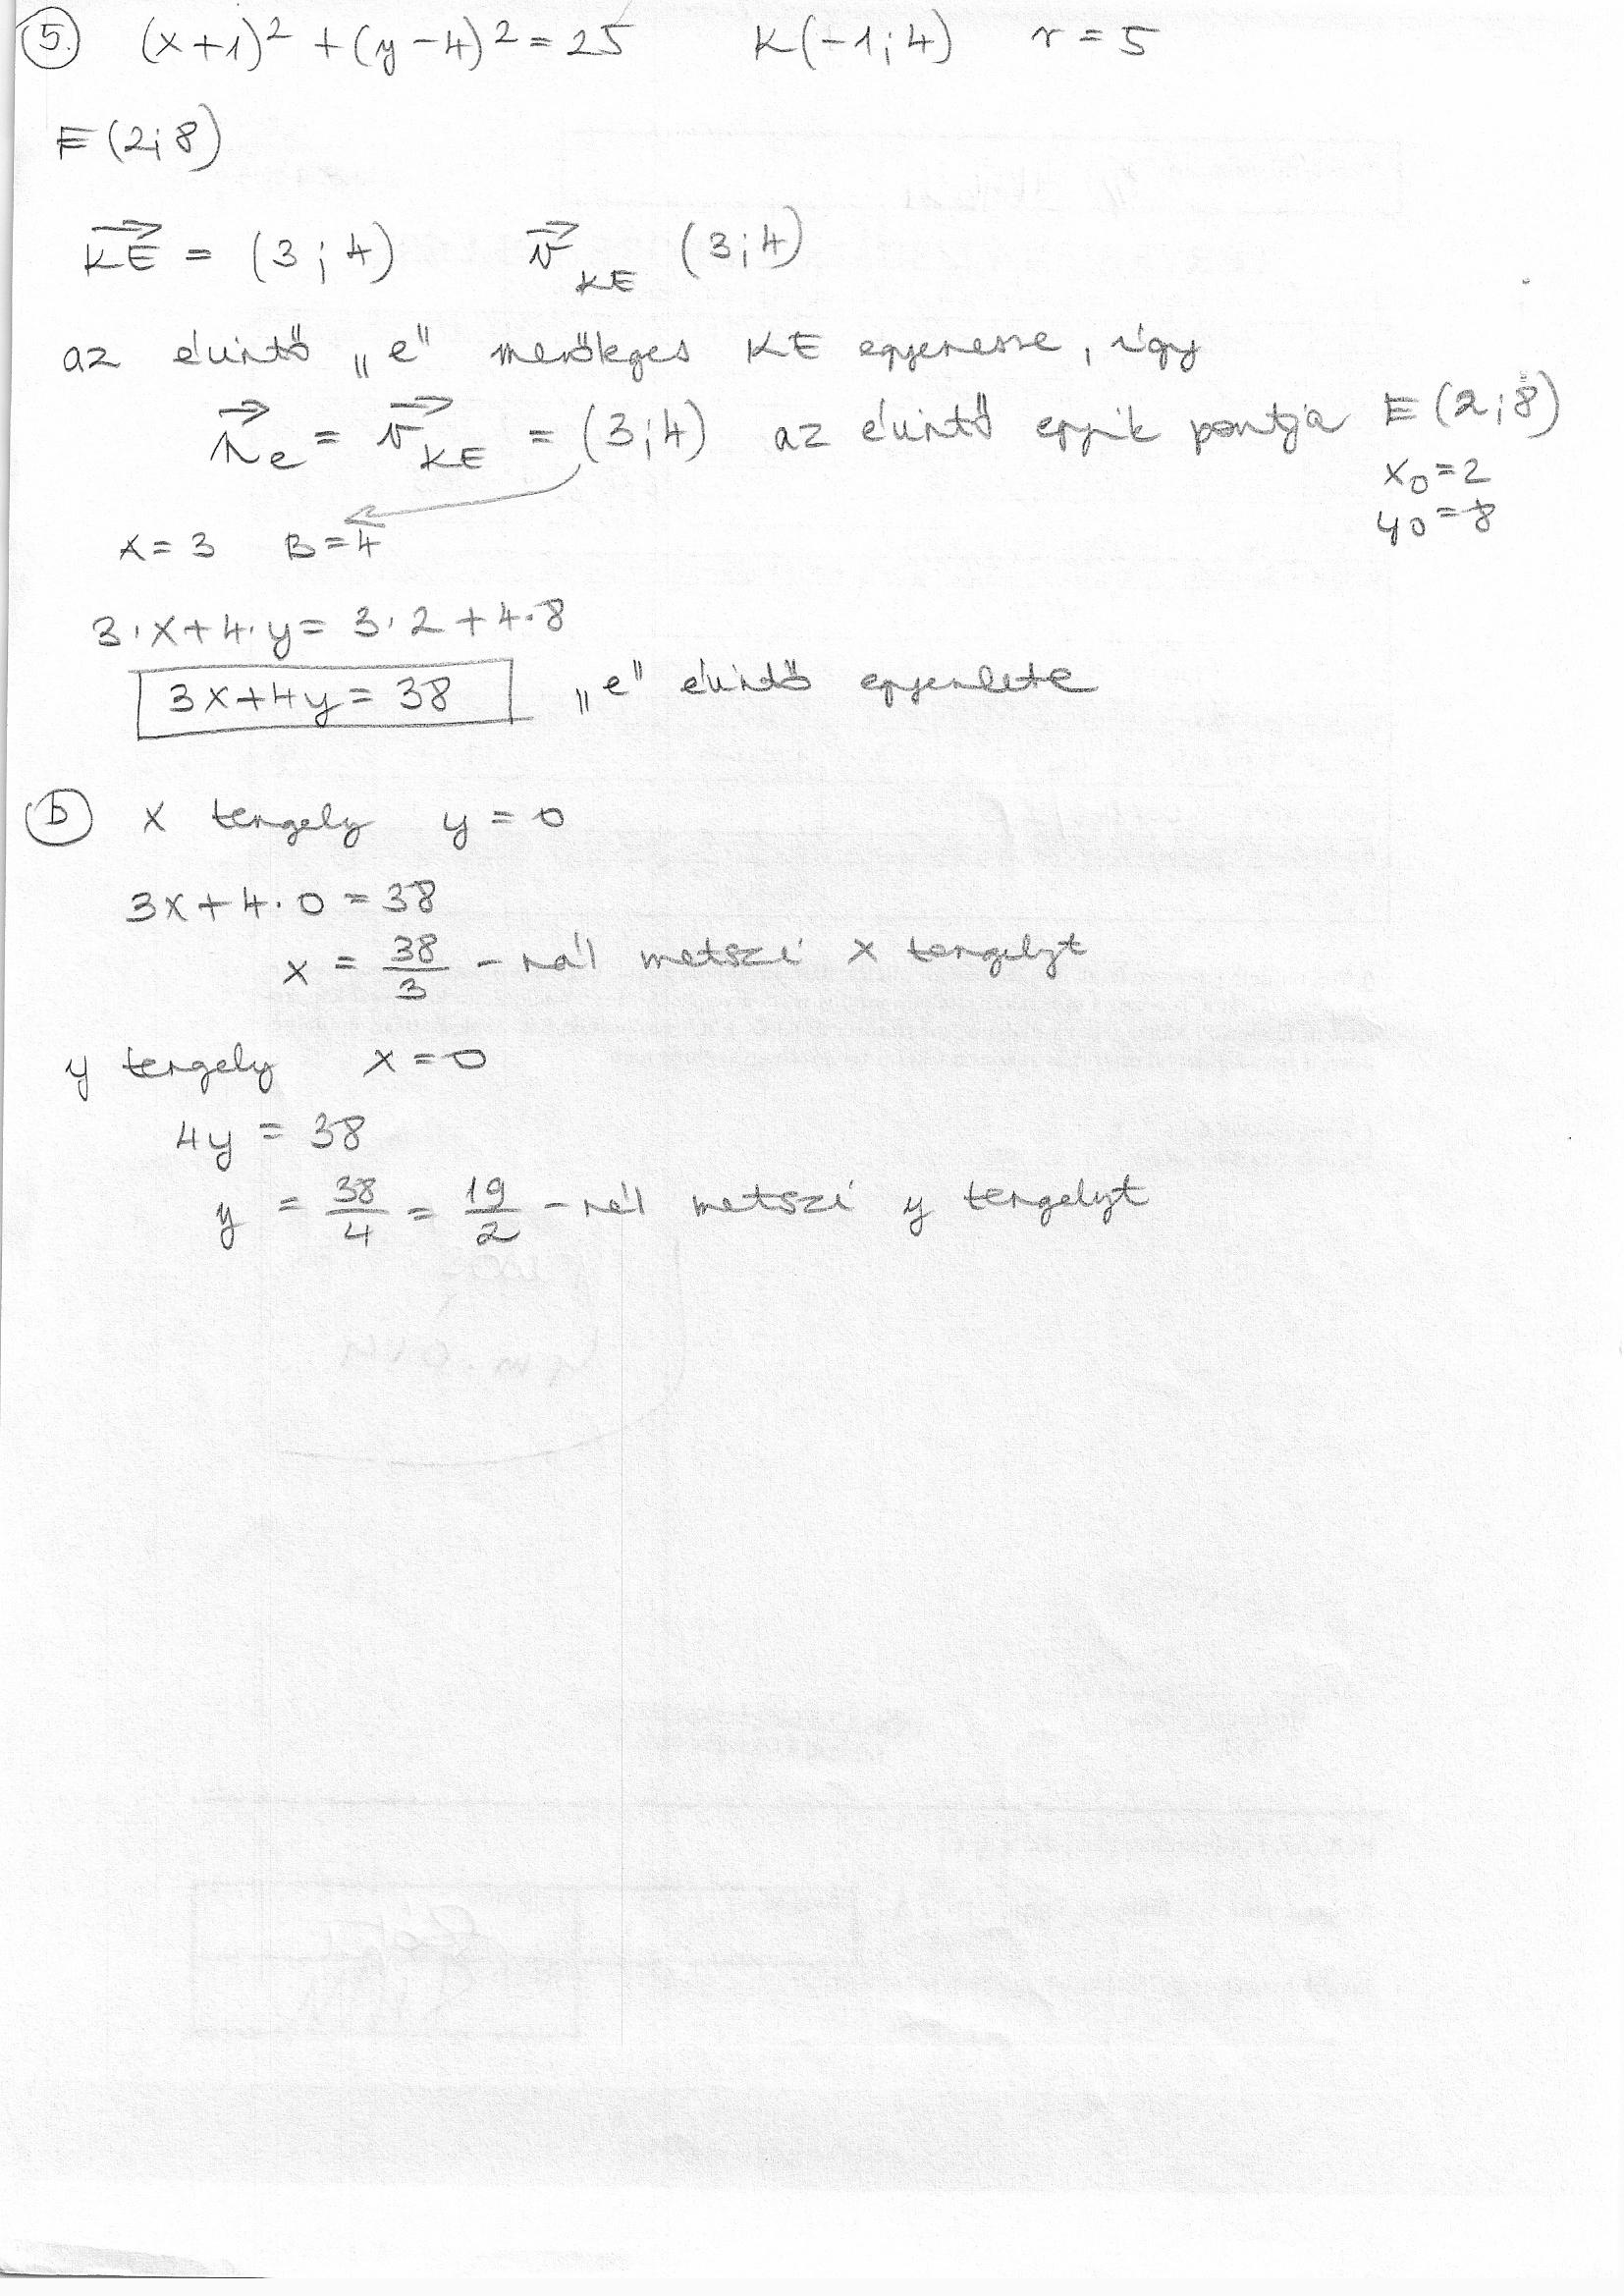 5. (x+1)² + (y-4)² = 25 K(-1;4) r = 5
E(2;8)
KE = (3;4) v KE (3;4)
az érintő „e" merőleges KE egyenesre, így
n e = v KE = (3;4) az érintő egyik pontja E(2;8)
x₀=2
y₀=8
A=3 B=4
3·x+4·y = 3·2+4·8
3x+4y = 38 „e" érintő egyenlete
b x tengely y = 0
3x+4·0 = 38
x = 38/3 - nál metszi x tengelyt
y tengely x = 0
4y = 38
y = 38/4 = 19/2 - nél metszi y tengelyt